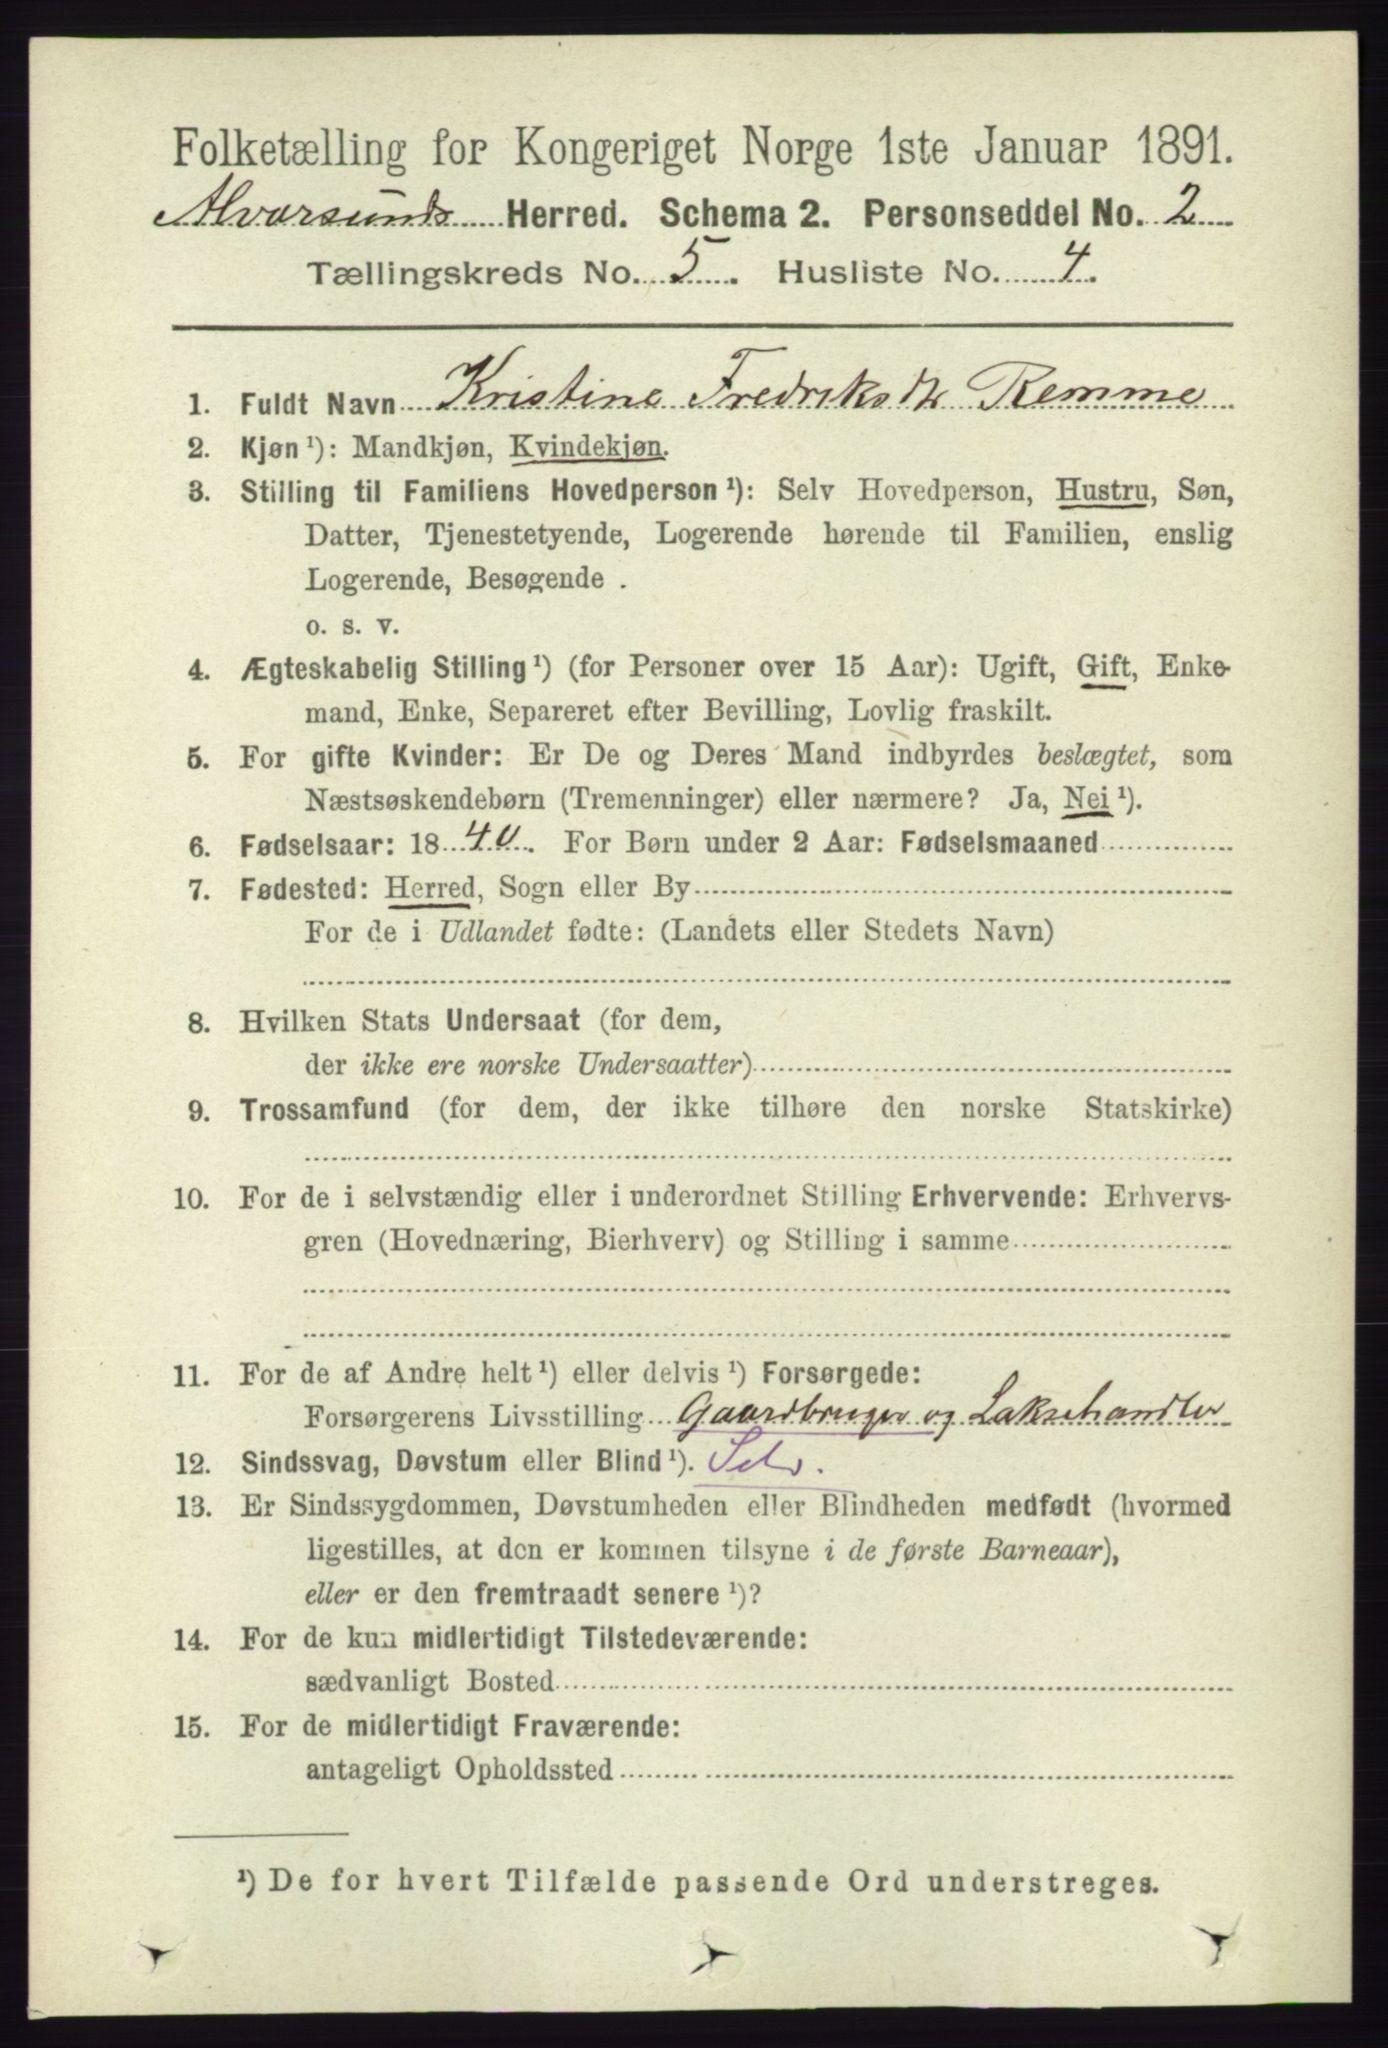 Folketælling for Kongeriget Norge 1ste Januar 1891.
Alversunds Herred. Schema 2. Personseddel No. 2
Tællingskreds No. 5. Husliste No. 4.
1. Fuldt Navn Kristine Fredriksdtr Remme
2. Kjøn ¹): Mandkjøn, Kvindekjøn.
3. Stilling til Familiens Hovedperson ¹): Selv Hovedperson, Hustru, Søn,
Datter, Tjenestetyende, Logerende hørende til Familien, enslig
Logerende, Besøgende .
o. s. v.
4. Ægteskabelig Stilling ¹) (for Personer over 15 Aar): Ugift, Gift, Enke-
mand, Enke, Separeret efter Bevilling, Lovlig fraskilt.
5. For gifte Kvinder: Er De og Deres Mand indbyrdes beslægtet, som
Næstsøskendebørn (Tremenninger) eller nærmere? Ja, Nei ¹).
6. Fødselsaar: 1840. For Børn under 2 Aar: Fødselsmaaned
7. Fødested: Herred, Sogn eller By
For de i Udlandet fødte: (Landets eller Stedets Navn)
8. Hvilken Stats Undersaat (for dem,
der ikke ere norske Undersaatter)
9. Trossamfund (for dem, der ikke tilhøre den norske Statskirke)
10. For de i selvstændig eller i underordnet Stilling Erhvervende: Erhvervs-
gren (Hovednæring, Bierhverv) og Stilling i samme
11. For de af Andre helt ¹) eller delvis ¹) Forsørgede:
Forsørgerens Livsstilling Gaardbruger og Laksehandler
12. Sindssvag, Døvstum eller Blind ¹). Selv.
13. Er Sindssygdommen, Døvstumheden eller Blindheden medfødt (hvormed
ligestilles, at den er kommen tilsyne i de første Barneaar),
eller er den fremtraadt senere ¹)?
14. For de kun midlertidigt Tilstedeværende:
sædvanligt Bosted
15. For de midlertidigt Fraværende:
antageligt Opholdssted
¹) De for hvert Tilfælde passende Ord understreges.